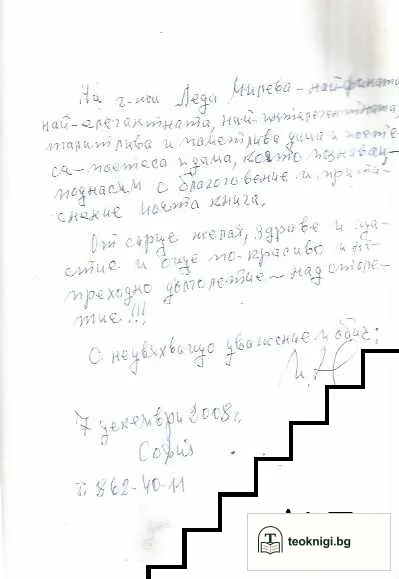 На г-жа Леда Милева - най-фината
най-елегантната, най-интелигентната,
талантлива и наистина дама и поете-
са - поетеса и дама, която познавам,
поднасям с благоговение и прити-
снение моята книга.
От сърце желая, здраве и ща-
стие и още по-красиво и не-
преходно дълголетие - над столе-
тие!!!
С неувяхващо уважение и обич:
7 декември 2008 г.
София
т. 862-40-11
teoknigi.bg